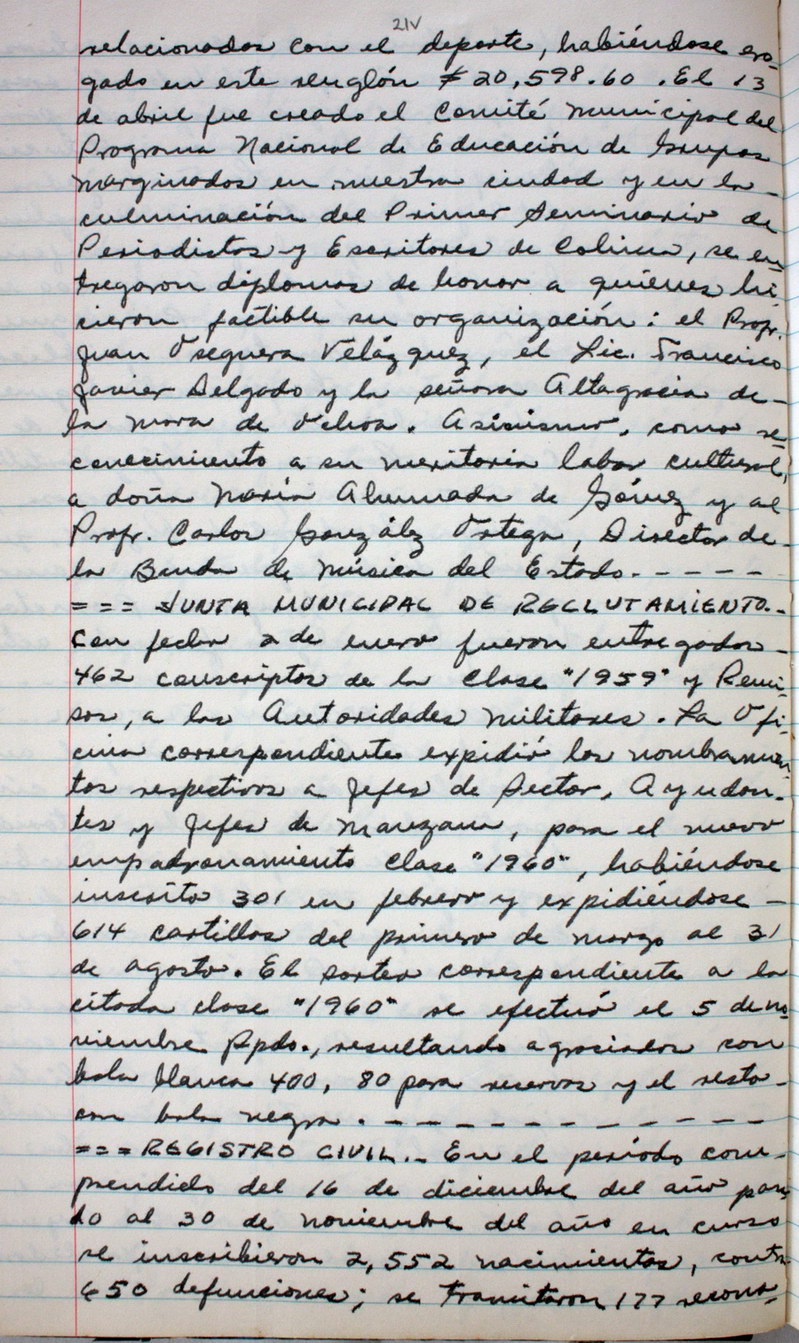 21V
relacionados con el deporte, habiéndose ero-
gado en este renglón $20,598.60. El 13
de abril fue creado el Comité Municipal del
Programa Nacional de Educación de Grupos
marginados en nuestra ciudad y en la -
culminación del Primer Seminario de
Periodistas y Escritores de Colima, se en-
tregaron diplomas de honor a quienes hi-
cieron factible su organización: el Profr.
Juan Oseguera Velázquez, el Lic. Francisco
Javier Delgado y la señora Altagracia de -
la Mora de Ochoa. Asimismo, como re-
conocimiento a su meritoria labor cultural,
a doña María Ahumada de Gómez y al
Profr. Carlos González Ortega, Director de -
la Banda de Música del Estado. - - - - -
= = = JUNTA MUNICIPAL DE RECLUTAMIENTO.-
Con fecha 2 de enero fueron entregados -
462 conscriptos de la Clase "1959" y Remi-
sos, a las Autoridades Militares. La Ofi-
cina correspondiente expidió los nombramien-
tos respectivos a Jefes de Sector, Ayudan-
tes y Jefes de Manzana, para el nuevo
empadronamiento Clase "1960", habiéndose
inscrito 301 en febrero y expidiéndose -
614 cartillas del primero de marzo al 31
de agosto. El sorteo correspondiente a la
citada clase "1960" se efectuó el 5 de no-
viembre Ppdo., resultando agraciados con
bola blanca 400, 80 para reservas y el resto -
con bola negra. - - - - - - - - - - - -
= = = REGISTRO CIVIL.- En el período com-
prendido del 16 de diciembre del año pasa-
do al 30 de noviembre del año en curso
se inscribieron 2,552 nacimientos, contra
650 defunciones; se tramitaron 177 recono-